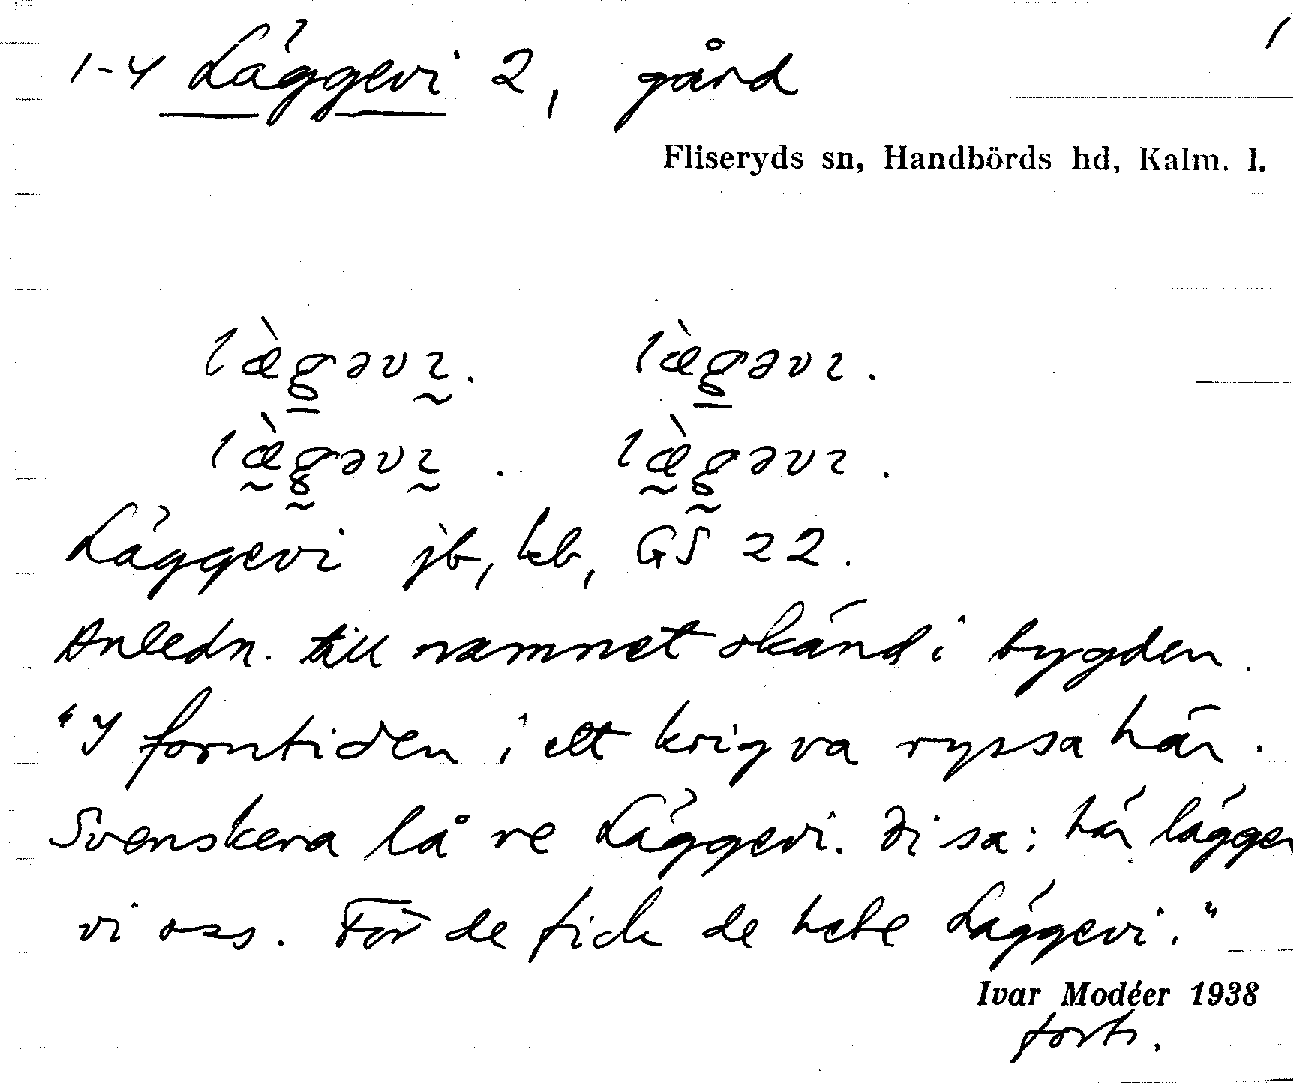 1
1-4 Läggevi 2, gård
Fliseryds sn, Handbörds hd, Kalm. l.
læ̀gəvɿ. læ̀gəvɿ.
læ̀gəvɿ. læ̀gəvɿ.
Läggevi jb, kb, GS 22.
Anledn. till namnet okänd i bygden.
"I forntiden i ett krig va ryssa här.
Svenskera lå ve Läggevi. Di sa: här lägger
vi oss. För de fick de hete Läggevi."
Ivar Modéer 1938
forts.